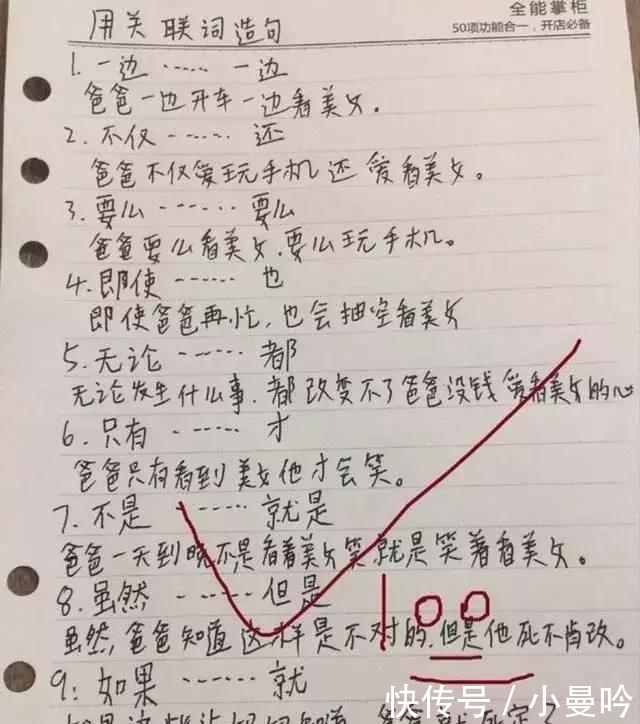 全能掌柜
50项功能合一，开店必备
用关联词造句
1. 一边 ······ 一边
爸爸一边开车一边看美女.
2. 不仅 ······ 还
爸爸不仅爱玩手机还爱看美女。
3. 要么 ······ 要么
爸爸要么看美女.要么玩手机。
4. 即使 ······ 也
即使爸爸再忙，也会抽空看美女
5. 无论 ······ 都
无论发生什么事.都改变不了爸爸没钱爱看美女的心
6. 只有 ······ 才
爸爸只有看到美女他才会笑。
7. 不是 ······ 就是
爸爸一天到晚不是看着美女笑就是笑着看美女。
8. 虽然 ······ 但是
虽然,爸爸知道这样是不对的,但是他死不肯改。
100
9: 如果 ······ 就
快传号／小曼吟